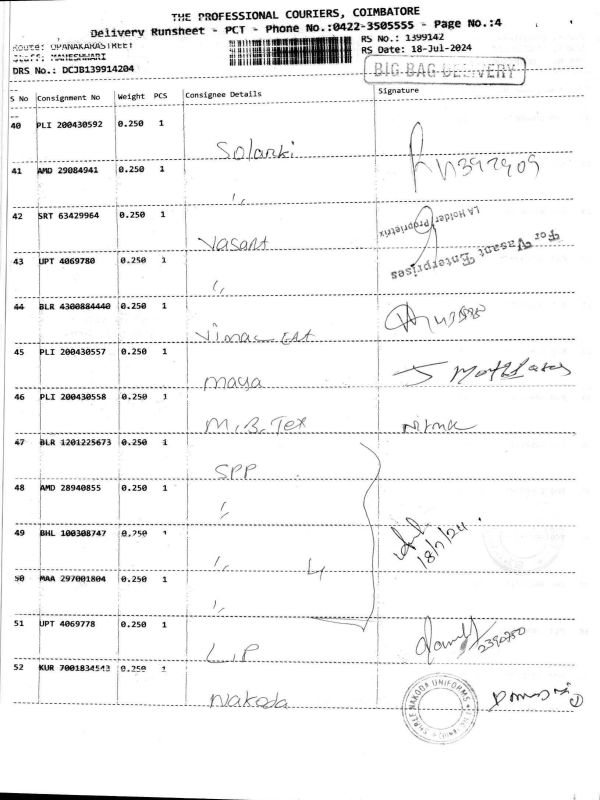 THE PROFESSIONAL COURIERS, COIMBATORE
Delivery Runsheet - PCT - Phone No.:0422-3505555 - Page No.:4
Route: OPANAKARASTREET
RS No.: 1399142
Staff: MAHESHWARI
RS Date: 18-Jul-2024
DRS No.: DCJB139914204
BIG BAG DELIVERY
S No Consignment No Weight PCS Consignee Details Signature
40 PLI 200430592 0.250 1 Solanki
41 AMD 29084941 0.250 1 ,,
42 SRT 63429964 0.250 1 Vasant
For Vasant Enterprises
LA Holder Proprietrix
43 UPT 4069780 0.250 1 ,,
44 BLR 4300884440 0.250 1 Vimac
45 PLI 200430557 0.250 1 maya
46 PLI 200430558 0.250 1 M.B.Tex
47 BLR 1201225673 0.250 1 SPP
48 AMD 28940855 0.250 1 ,,
49 BHL 100308747 0.250 1 ,, 4
18/7/24.
50 MAA 297001804 0.250 1 ,,
51 UPT 4069778 0.250 1 L.P
52 KUR 7001834543 0.250 1 Nakoda
SHREE NAKODA UNIFORMS